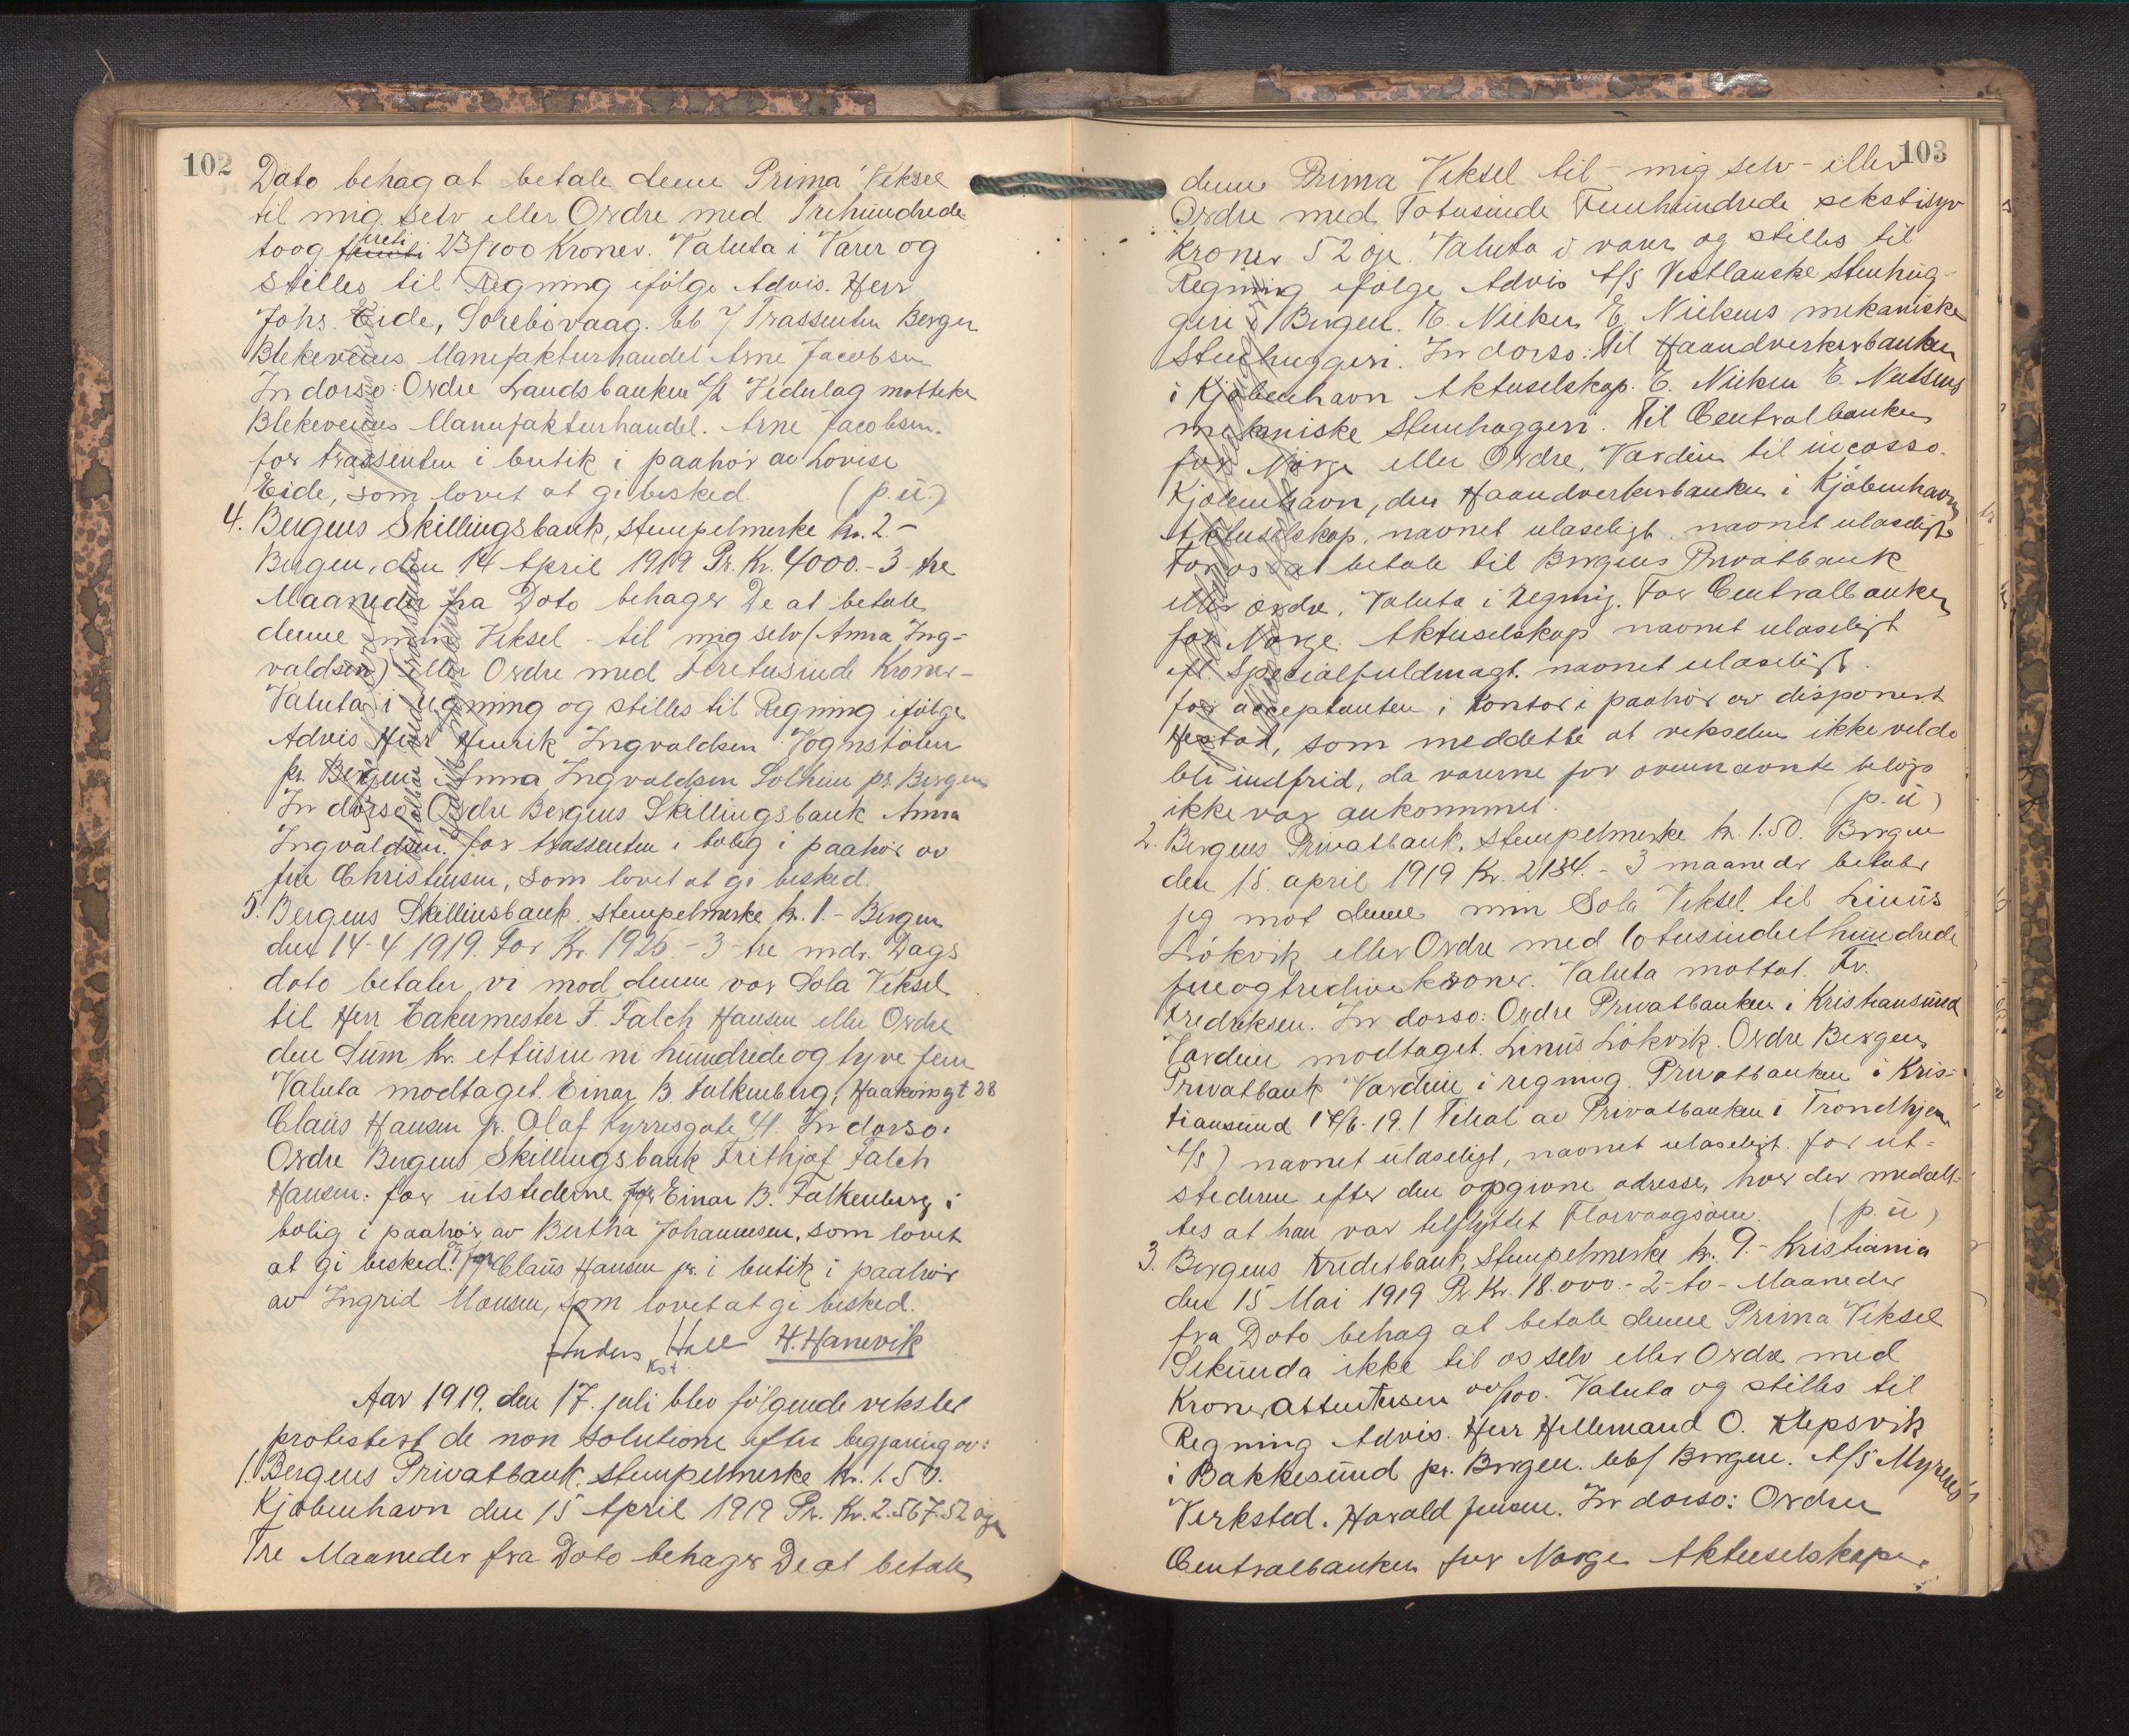 102
Dato behag at betale denne Prima Veksel
til mig selv eller Ordre med Trehundrede
toog treti 23/100 Kroner. Valuta i Varer og
stilles til Regning ifölge Advis. Herr
Johs. Eide, Sorebövaag. bb / Trassenten Bergen
Blekeveiens Manufakturhandel Arne Jacobsen
In dorso: Ordre Landsbanken A/L Vedulag mottat
Blekeveiens Manufakturhandel. Arne Jacobsen.
for trassenten i butik i paahör av Lovise
Eide, som lovet at gi besked. (p.u.)
4. Bergens Skillingsbank, stempelmerke kr. 2.-
Bergen, den 14 April 1919 Pr. Kr. 4000.- 3 - tre
Maaneder fra Dato behager De at betale
denne min Veksel - til mig selv (Anna Ing-
valdsen) eller Ordre med Firetusinde Kroner -
Valuta i regning og stilles til Regning ifölge
Advis Herr Henrik Ingvaldsen Vognstölen
pr. Bergen. Anna Ingvaldsen Solheim pr. Bergen
In dorso: Ordre Bergens Skillingsbank Anna
Ingvaldsen. for trassenten i bolig i paahör av
frk Christensen, som lovet at gi besked.
5. Bergens Skillinsbank. stempelmerke kr. 1.- Bergen
den 14-4 1919. For Kr. 1925.- 3 - tre mdr. Dags
dato betaler vi mod denne vor Sola Veksel
til Herr Bakermester F. Falch Hansen eller Ordre
den Sum Kr. ettusin ni hundrede og tyve fem
Valuta modtaget. Einar B. Falkenberg, Haakonsgt 28
Claus Hansen jr. Olaf Kyrresgate 41. In dorso:
Ordre Bergens Skillingsbank Frithjof Falch
Hansen: for utstederne for Einar B. Falkenberg i
bolig i paahör av Bertha Johannesen, som lovet
at gi besked. og for Claus Hansen jr. i butik i paahör
av Ingrid Monsen, som lovet at gi besked.
Anders Hall H. Hanevik
Kst.
Aar 1919, den 17. juli blev fölgende veksler
protestert de non solutione efter begjæring av:
1. Bergens Privatbank, stempelmerke kr. 1.50.
Kjöbenhavn den 15 April 1919 Pr. Kr. 2.567.52 öre
Tre Maaneder fra Dato behager De at betale
103
denne Prima Veksel til - mig selv - eller
Ordre med Totusinde Femhundrede sekstisyv
kroner 52 öre. Valuta i varer og stilles til
Regning ifölge Advis A/S Vestlanske Stenhug-
geri i Bergen. E. Nielsen E. Nielsens mekaniske
Stenhuggeri. In dorso: Til Haandverkerbanken
i Kjöbenhavn Aktieselskap. E. Nielsen E. Nielsens
mekaniske Stenhuggeri. Til Centralbanken
for Norge eller Ordre, Værdien til incasso.
Kjöbenhavn, den Haandverkerbanken i Kjöbenhavn
Aktieselskap. navnet ulæseligt. navnet ulæseligt
For os at betale til Bergens Privatbank
eller ordre. Valuta i Regning. For Centralbanken
for Norge. Aktieselskap navnet ulæseligt
efl. Specialfuldmagt. navnet ulæseligt.
for acceptanten i kontor i paahör av disponent
som meddelte at vekselen ikke vilde
bli indfrid, da varerne for ovennævnte belöp
ikke var ankommet. (p.u)
2. Bergens Privatbank, stempelmerke kr. 1.50. Bergen
den 15. april 1919 Kr. 2134.- 3 maaneder betaler
jeg mot denne min Sola Veksel. til Linus
Lökvik eller Ordre med totusindeethundrede
fireogtredive kroner. Valuta mottat. Fr.
Fredriksen. In dorso: Ordre Privatbanken i Kristiansund
Værdien modtaget. Linus Lökvik. Ordre Bergens
Privatbank Værdien i regning. Privatbanken i Kris-
tiansund 14/6-19. (Filial av Privatbanken i Trondhjem
A/S) navnet ulæseligt, navnet ulæseligt. for ut-
stederen efter den opgivne adresse, hvor der meddel-
tes at han var tilflyttet Florvaagsøen. (p.u)
3. Bergens Kreditbank, stempelmerke kr. 9.- Kristiania
den 15 Mai 1919 Pr. Kr. 18.000.- 2 - to - Maaneder
fra Dato behag at betale denne Prima Veksel
Sekunda ikke til os selv eller Ordre med
Kroner attentusen 00/100. Valuta og stilles til
Regning Advis. Herr Hillemand O. Klepsvik
i Bakkesund pr. Bergen. bb/ Bergen. A/S Myrens
Verksted. Harald Jensen. In dorso: Ordre
Centralbanken for Norge Aktieselskape.